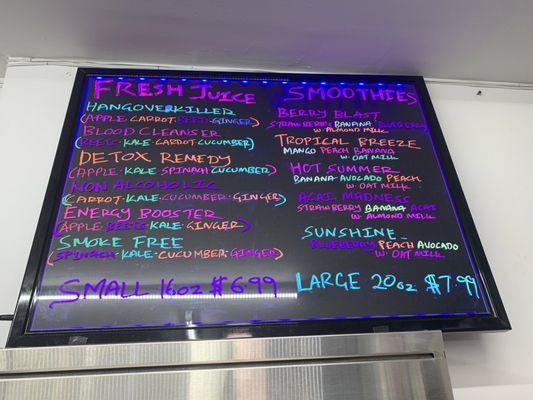 FRESH JUICE
HANGOVERKILLER
(APPLE·CARROT·BEETS·GINGER)
BLOOD CLEANSER
(BEETS·KALE·CARROT·CUCUMBER)
DETOX REMEDY
(APPLE·KALE·SPINACH·CUCUMBER)
NON ALCOHOLIC
(CARROT·KALE·CUCUMBER·GINGER)
ENERGY BOOSTER
(APPLE·BEETS·KALE·GINGER)
SMOKE FREE
(SPINACH·KALE·CUCUMBER·GINGER)
SMALL 16oz $6.99
SMOOTHIES
BERRY BLAST
STRAWBERRY BANANA BLUEBERRY
W. ALMOND MILK
TROPICAL BREEZE
MANGO PEACH BANANA
W. OAT MILK
HOT SUMMER
BANANA AVOCADO PEACH
W. OAT MILK
ACAI MADNESS
STRAWBERRY BANANA ACAI
W. ALMOND MILK
SUNSHINE
BLUEBERRY PEACH AVOCADO
W. OAT MILK
LARGE 20oz $7.99